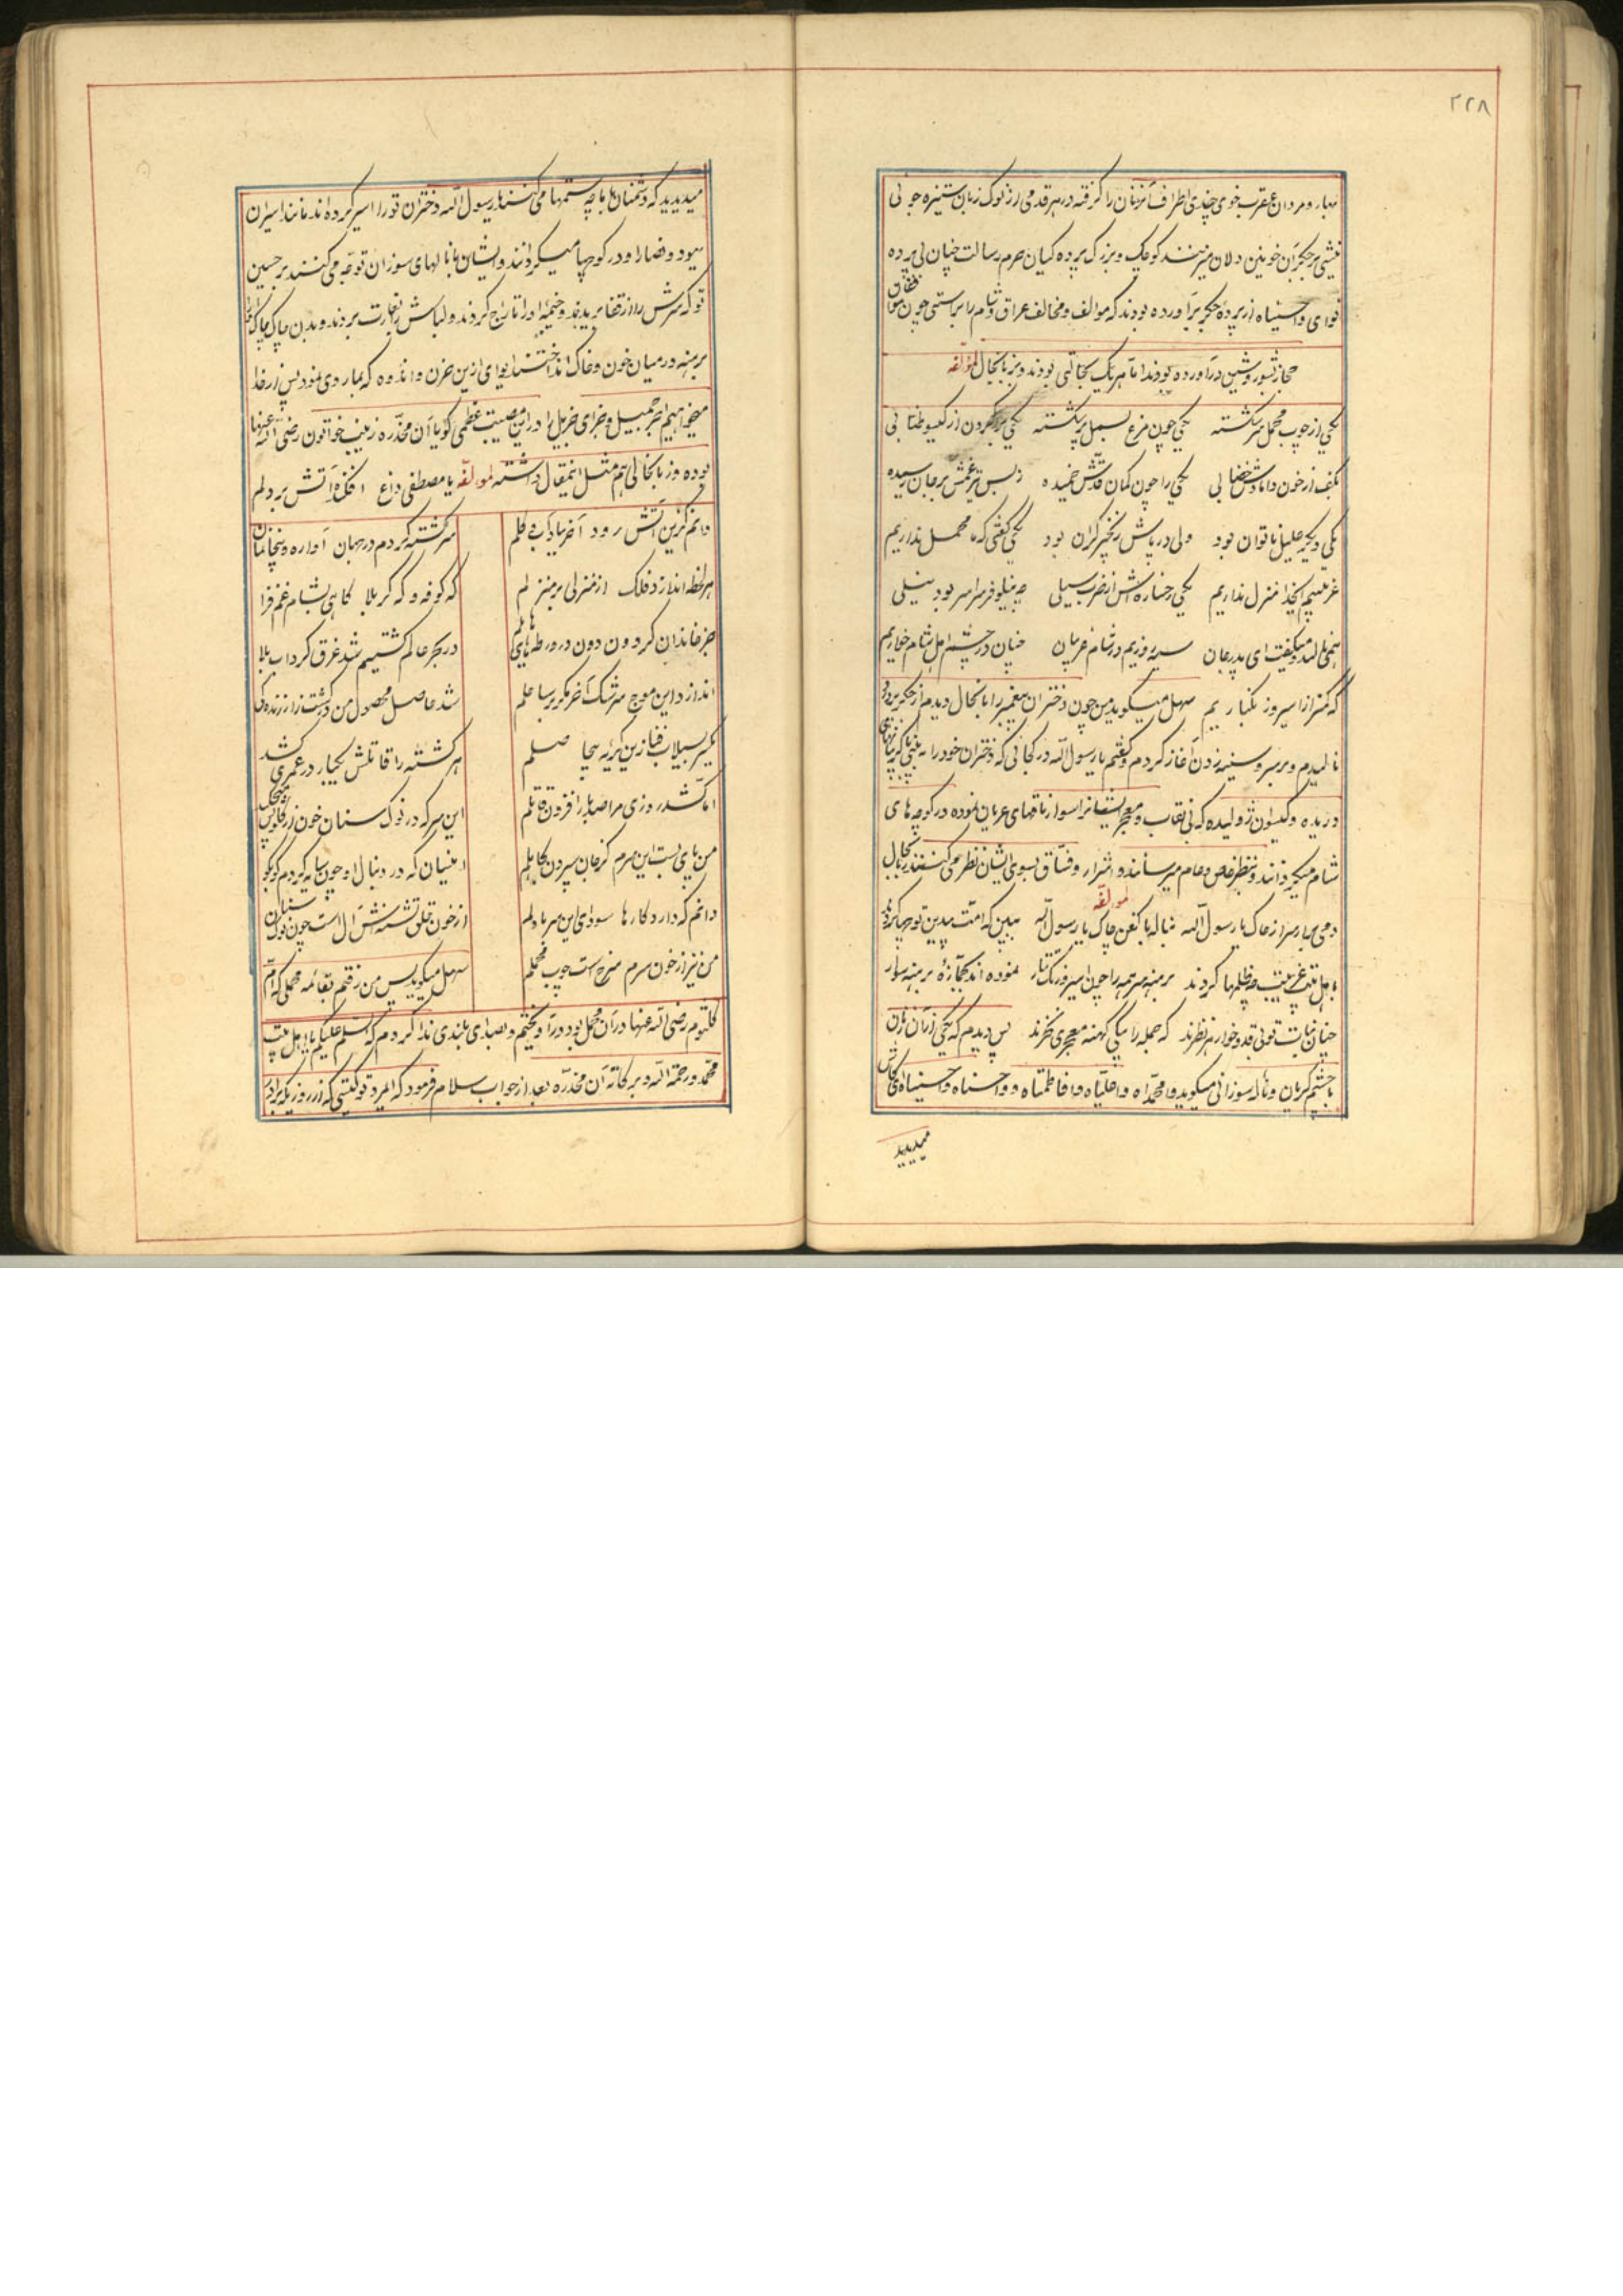 ۲۲۸
مهار و مردان عقرب خوی چندی اطراف آنزنان را گرفته در هر قدمی از نوک زبان ستیزه جو نی
نیشی بر جگر آن خونین دلان میزنند کوچک و بزرگ پرده کیان حرم رسالت چنان بی پرده
نوای واحسیناه از پرده جگر برآورده بودند که موالف و مخالف عراق و شام را براستی چون
حجاز بشور و شین درآورده بودند اما هر یک بحالتی بودند و بزبانحال لمؤلفه
یکی از چوب محمل سر شکسته یکی چون مرغ بسمل پر شکسته یکی گردن از گیسو طنابی
بکف از خون داماد ش خضابی یکی را چون کمان قدش خمیده ز بس تیر غمش بر جان رسیده
یکی دیگر علیل ناتوان بود ولی در پاش زنجیر گران بود یکی گفتی که ما محمل نداریم
غریبیم اینجا منزل نداریم یکی رخساره اش از ضرب سیلی چه نیلوفر سراسر بود نیلی
همی نالید و میگفت ای پدر جان سیه روزیم در شام غریبان چنان در چشم اهل شام خواریم
سهل میگوید من چون دختران پیغمبر را بانحال دیدم از جگر
نالیدم و بر سر و سینه زدن آغاز کردم و گفتم یا رسول الله در کجائی که دختران خود را به بینی با
دریده و گیسوان ژولیده که بی نقاب و معجر ایشانرا سوار ناقهای عریان نموده در کوچه های
شام میگردانند و بنظر خاص و عام میرسانند و اشرار و فساق بسوی ایشان نظر می کنند
لمؤلفه
دمی بدار سر از خاک یا رسول الله بناله با کفن چاک یا رسول الله ببین که امت بیدین تو چها کردند
باهل بیت غریبت چه ظلمها کردند برهنه سر همه را چون اسیر زنگ تتار نموده اند بجمازه برهنه سوار
چنان بنات تو بی قدر و خوار در نظرند که جمله را بیکی کهنه معجری نخرند پس دیدم که یکی از آن زنان
با چشم گریان و ناله سوزانی میگوید وا محمداه وا علیاه وا فاطمتاه و واحسناه واحسیناه ای کاش
میدیدید
میدیدید که دشمنان با ما چه ستمها می کنند یا رسول الله دختران تو را اسیر کرده اند مانند اسیران
یهود و نصارا و در کوچها میگردانند و ایشان با نالهای سوزان نوحه می کنند بر حسین
تو که سرش را از قفا بریدند و خیمه او را تاراج کردند و لباسش را بغارت بردند و بدن
برهنه در میان خون و خاک انداختند ای وای از این حزن و اندوه که بما روی نمود پس از خدا
میخواهیم اجر جمیل و جزای جزیل را در این مصیبت عظمی گویا آن مخدره زینب خواتون رضی الله عنها
بوده و زبانحالی هم مثل اینمقال داشته لمؤلفه یا مصطفی داغ افکنده آتش بر دلم
دانم کزین آتش رود آخر بباد آب و گلم سرگشته کردم در جهان آواره و بیخانمان
هر لحظه اندازد فلک از منزلی بر منزلم گه کوفه و گه کربلا گاهی بشام غم فزا
در بحر عالم کشتیم شد غرق گرداب بلا
اندازد این موج سرشک آخر مگر بر ساحلم شد حاصل محصول من در کشتزار زندگی
یکسر بسیلاب فنا زین گریه بیحاصلم هر کشته را قاتلش یکبار در عمری کشد
اما کشد روزی مرا صد بار افزون قاتلم این سر که در نوک سنان خون
من پای بست این سرم کز جان سپردن
دانم که دارد کارها سودای این سر با دلم از خون حلق تشنه اش آل است چون نوک سنان
من نیز از خون سرم سرخ است چوب محملم سهل میگوید پس من رفتم بقائمه محملی که ام
کلثوم رضی الله عنها در آن محمل بود در آویختم و بصدای بلندی ندا کردم که السلام علیکم یا اهل بیت
محمد و رحمة الله و برکاته آن مخدره بعد از جواب سلام فرمود که ای مرد تو کیستی که از روزیکه برادر